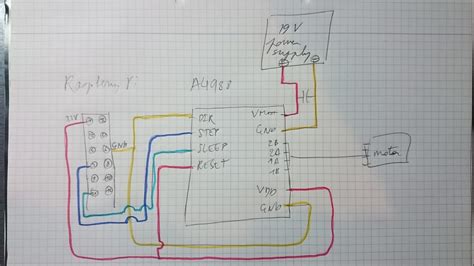 19V
power
supply
Raspberry Pi
A4988
3.3V
GND
DIR
STEP
SLEEP
RESET
VMOT
GND
2B
2A
1A
1B
VDD
GND
motor